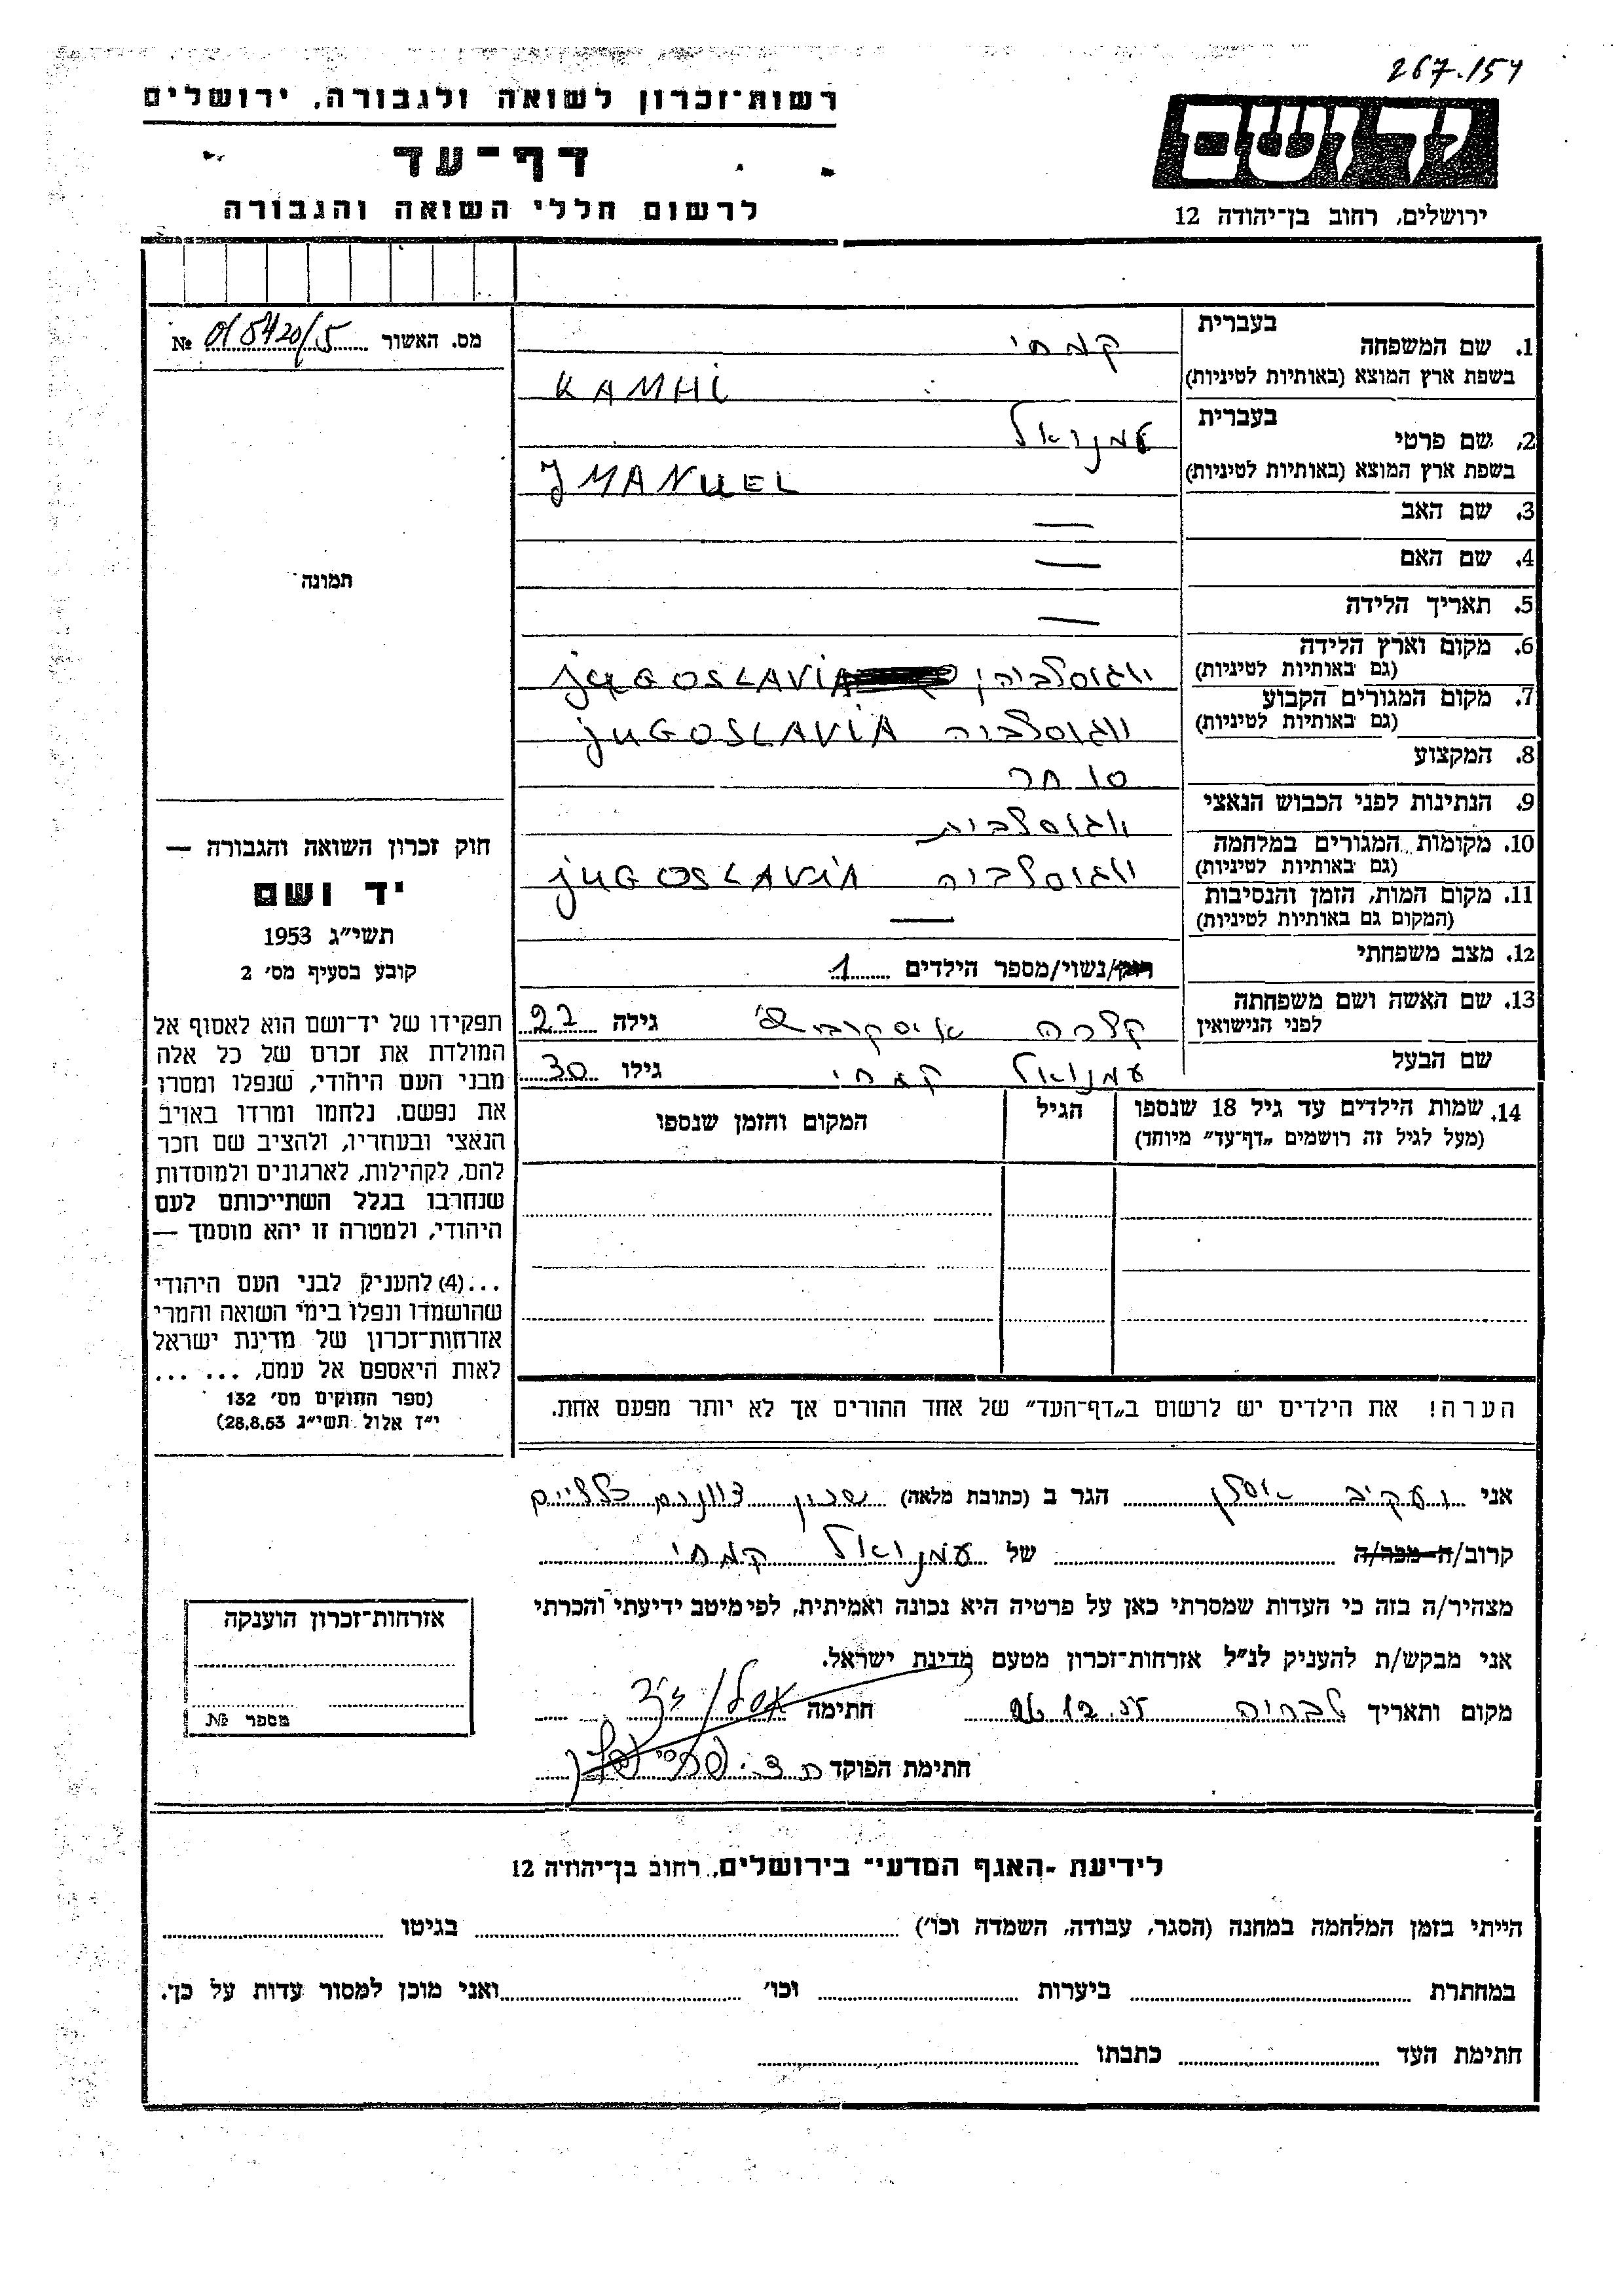 267.154
רשות־זכרון לשואה ולגבורה, ירושלים
דף־עד
לרשום חללי השואה והגבורה
יד ושם
ירושלים, רחוב בן־יהודה 12
מס. האשור № 018420/5
תמונה
חוק זכרון השואה והגבורה —
יד ושם
תשי״ג 1953
קובע בסעיף מס׳ 2
תפקידו של יד־ושם הוא לאסוף אל
המולדת את זכרם של כל אלה
מבני העם היהודי, שנפלו ומסרו
את נפשם. נלחמו ומרדו באויב
הנאצי ובעוזריו, ולהציב שם וזכר
להם, לקהילות, לארגונים ולמוסדות
שנחרבו בגלל השתייכותם לעם
היהודי, ולמטרה זו יהא מוסמך —
...(4) להעניק לבני העם היהודי
שהושמדו ונפלו בימי השואה והמרי
אזרחות־זכרון של מדינת ישראל
לאות היאספם אל עמם, ... ...
(ספר החוקים מס׳ 132
י״ז אלול תשי״ג 28.8.53)
1. שם המשפחה בעברית קמחי
בשפת ארץ המוצא (באותיות לטיניות) KAMHI
2. שם פרטי בעברית עמנואל
בשפת ארץ המוצא (באותיות לטיניות) JMANUEL
3. שם האב —
4. שם האם —
5. תאריך הלידה —
6. מקום וארץ הלידה
(גם באותיות לטיניות) juGOSLAViA
7. מקום המגורים הקבוע
(גם באותיות לטיניות) יוגוסלביה juGOSLAViA
8. המקצוע סוחר
9. הנתינות לפני הכבוש הנאצי יוגוסלבית
10. מקומות המגורים במלחמה
(גם באותיות לטיניות) יוגוסלביה juGOSLAViA
11. מקום המות, הזמן והנסיבות
(המקום גם באותיות לטיניות) —
12. מצב משפחתי רווק/נשוי/מספר הילדים 1
13. שם האשה ושם משפחתה
לפני הנישואין קלרה גילה 22
שם הבעל עמנואל קמחי גילו 30
14. שמות הילדים עד גיל 18 שנספו
(מעל לגיל זה רושמים „דף־עד״ מיוחד)
הגיל
המקום והזמן שנספו
הערה! את הילדים יש לרשום ב„דף־העד״ של אחד ההורים אך לא יותר מפעם אחת.
אני הגר ב (כתובת מלאה) שכון
קרוב/ה מכר/ה של עמנואל קמחי
מצהיר/ה בזה כי העדות שמסרתי כאן על פרטיה היא נכונה ואמיתית, לפי מיטב ידיעתי והכרתי
אני מבקש/ת להעניק לנ״ל אזרחות־זכרון מטעם מדינת ישראל.
מקום ותאריך 26.12.55 חתימה
חתימת הפוקד
אזרחות־זכרון הוענקה
מספר №
לידיעת ־האגף המדעי־ בירושלים, רחוב בן־יהודה 12
הייתי בזמן המלחמה במחנה (הסגר, עבודה, השמדה וכו׳) בגיטו
במחתרת ביערות וכו׳ ואני מוכן למסור עדות על כך.
חתימת העד כתבתו